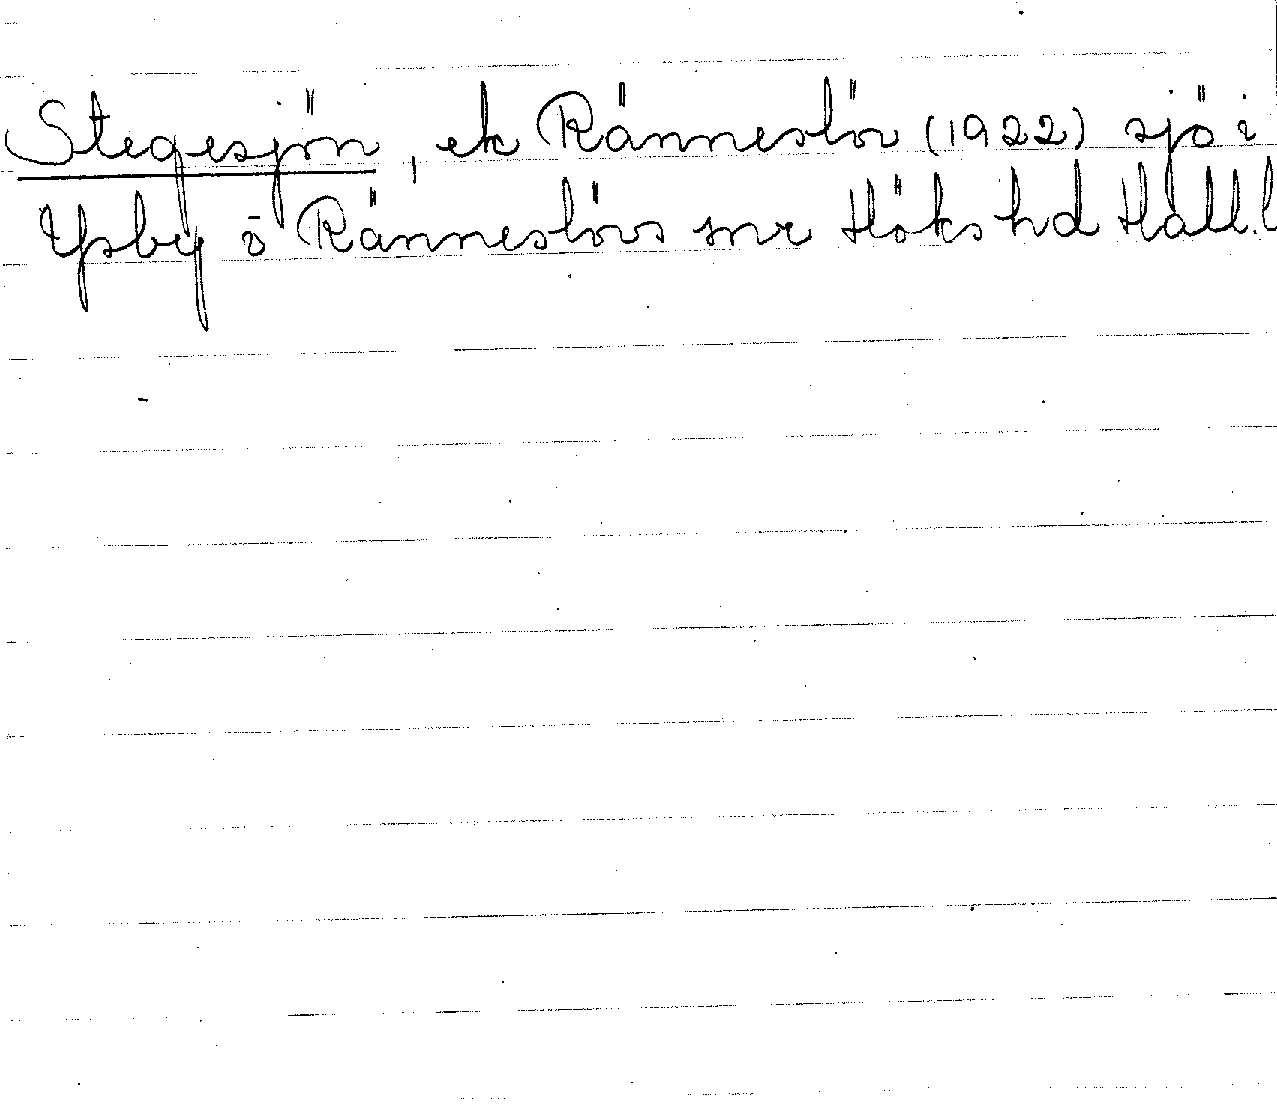 Stegesjön, ek Ränneslöv (1922) sjö i
Ysby o Ränneslövs snr Höks hd Hall.l